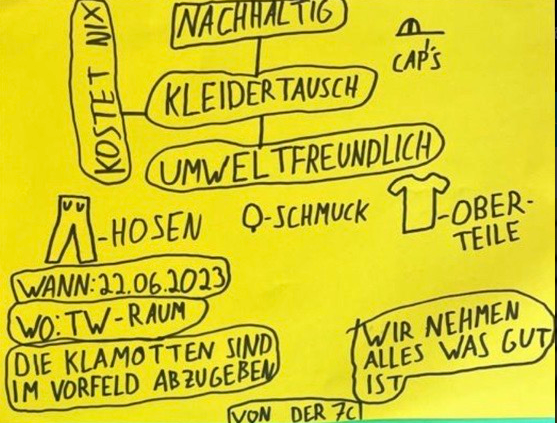 NACHHALTIG
KOSTET NIX
CAP's
KLEIDERTAUSCH
UMWELTFREUNDLICH
-HOSEN
-SCHMUCK
-OBER-
TEILE
WANN: 22.06.2023
WO: TW-RAUM
DIE KLAMOTTEN SIND
IM VORFELD ABZUGEBEN
WIR NEHMEN
ALLES WAS GUT
IST
VON DER 7C